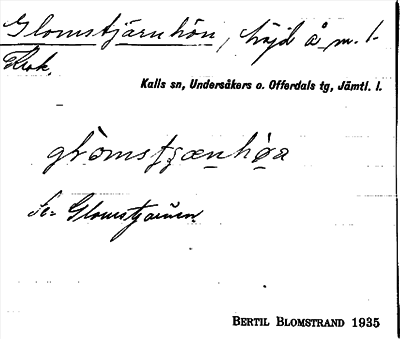 Glomstjärnhön, höjd å m. l.
Kalls sn, Undersåkers o. Offerdals tg, Jämtl. l.
Se: Glomstjärnen
BERTIL BLOMSTRAND 1935